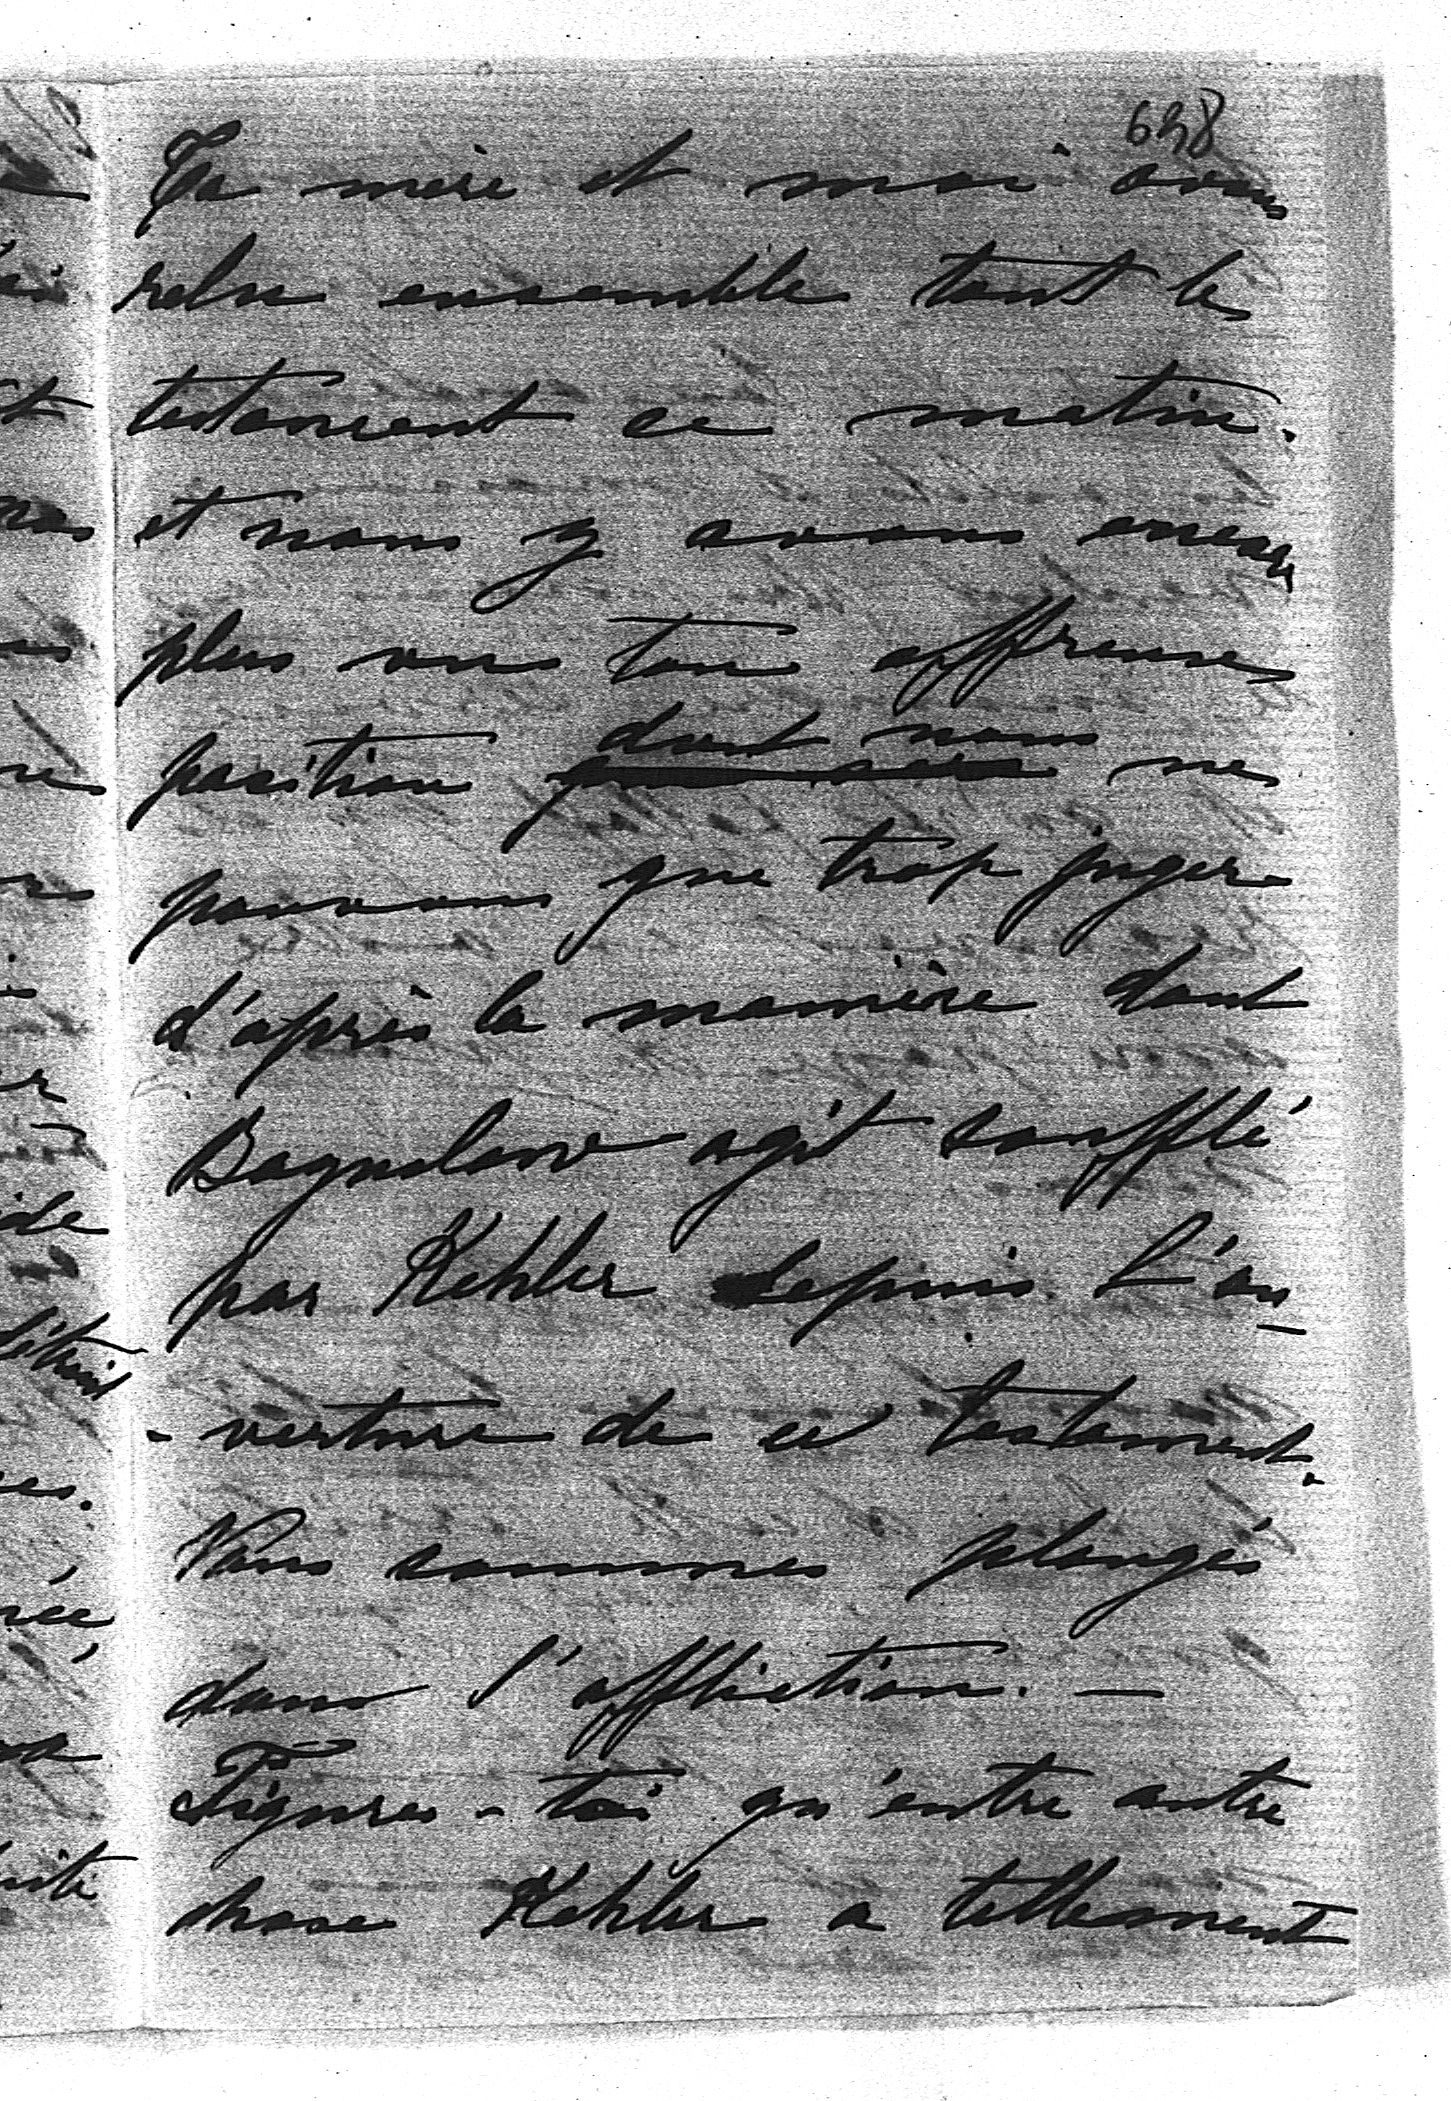 Ta mère et moi avons
relu ensemble tout le
testament ce matin.
et nous y avons encore
plus vu ton affreuse
position dont nous ne
pouvons que trop juger
d'après la manière dont
agit soufflé
par Kehler depuis l'ou-
-verture de ce testament.
Nous sommes plongés
dans l'affliction. —
Figures-toi qu'entre autre
chose Kehler a tellement